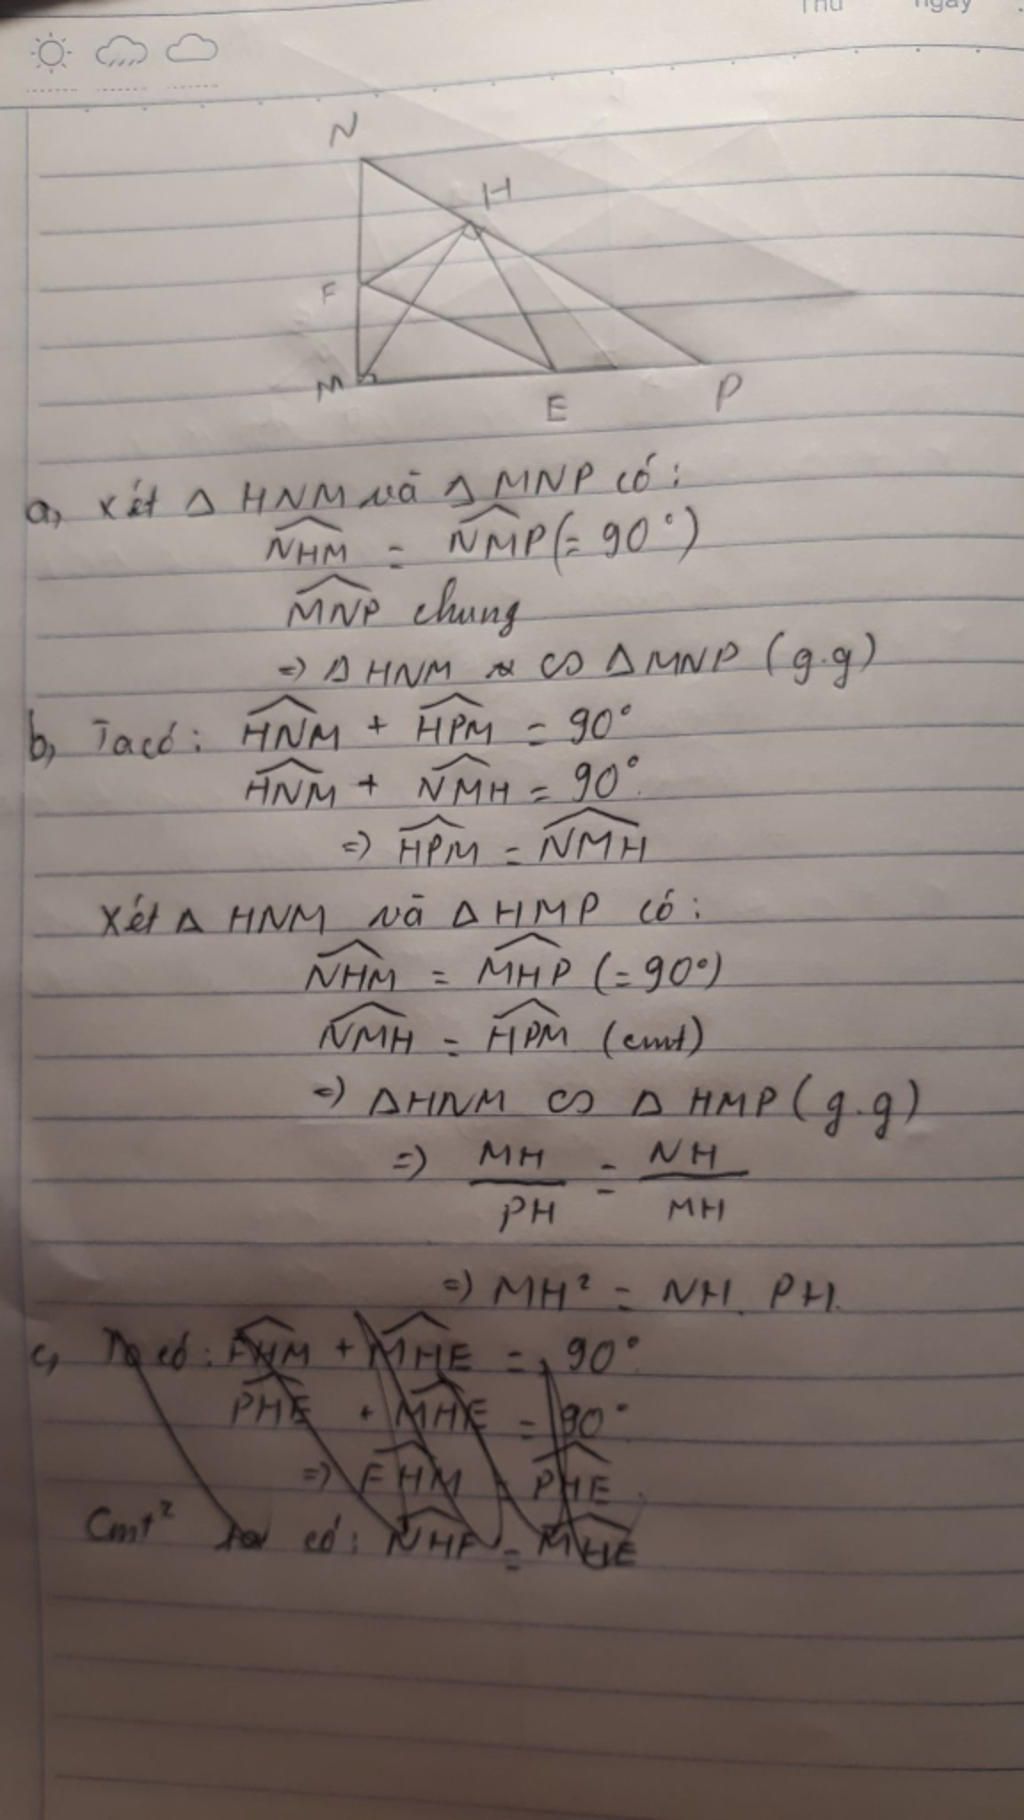 Thứ ngày
N
H
F
M
E
P
a, Xét Δ HNM và Δ MNP có:
\widehat{NHM} = \widehat{NMP} (= 90°)
\widehat{MNP} chung
=> Δ HNM ∽ Δ MNP (g.g)
b, Ta có: \widehat{HNM} + \widehat{HPM} = 90°
\widehat{HNM} + \widehat{NMH} = 90°.
=> \widehat{HPM} = \widehat{NMH}
Xét Δ HNM và Δ HMP có:
\widehat{NHM} = \widehat{MHP} (= 90°)
\widehat{NMH} = \widehat{HPM} (cmt)
=> Δ HNM ∽ Δ HMP (g.g)
=> \frac{MH}{PH} = \frac{NH}{MH}
=> MH² = NH. PH.
c, Ta có: \widehat{FHM} + \widehat{MHE} = 90°
\widehat{PHE} + \widehat{MHE} = 90°
=> \widehat{FHM} = \widehat{PHE}
Cmt² ta có: \widehat{NHF} = \widehat{MHE}